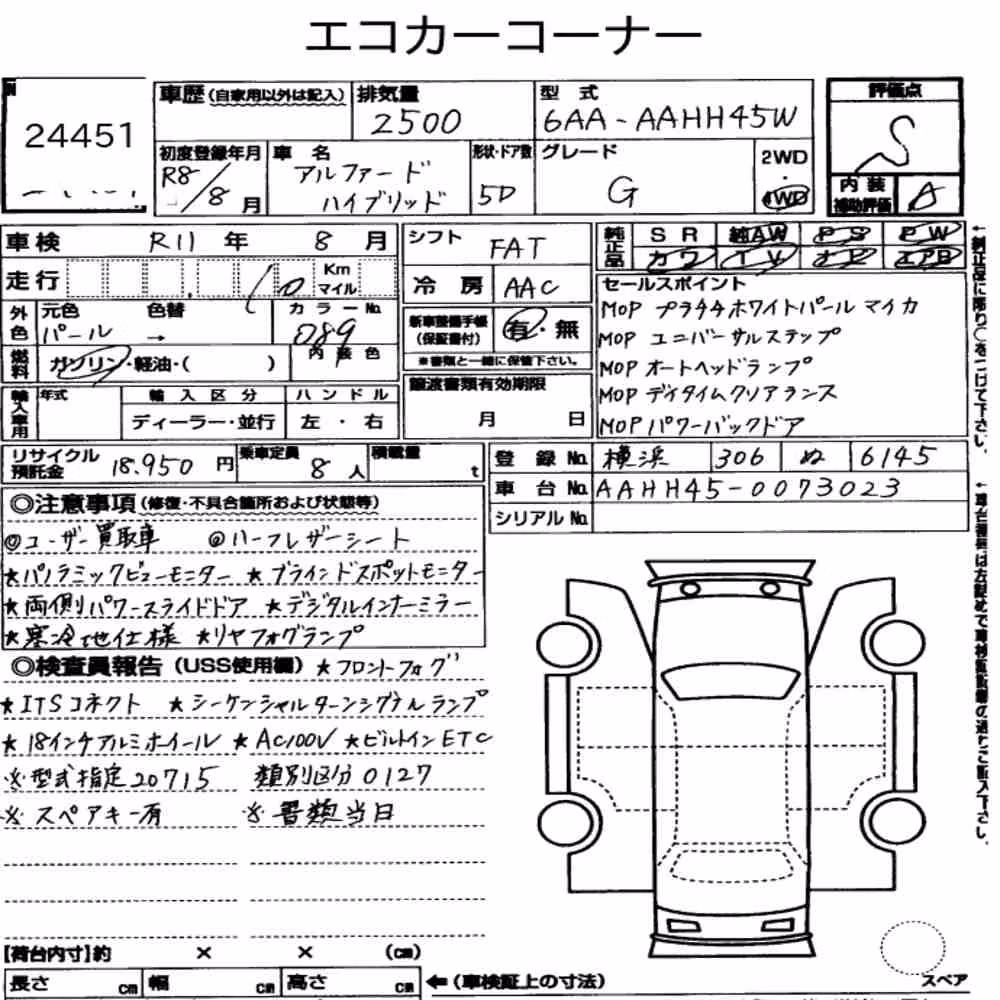 エコカーコーナー
24451
車歴(自家用以外は記入) 排気量 2500 型式 6AA-AAHH45W 評価点 S
初度登録年月 R8/8月 車名 アルファード ハイブリッド 形状・ドア数 5D グレード G 2WD 4WD 内装補助評価 A
車検 R11年 8月 シフト FAT 純正品 SR 純AW PS PW
カワ TV ナビ エアB
走行 10 Km マイル 冷房 AAC セールスポイント
外色 元色 パール 色替 → カラーNo. 089 内装色 新車整備手帳(保証書付) 有・無 ※書類と一緒に保管下さい。
MOP プラチナホワイトパール マイカ
MOP ユニバーサルステップ
燃料 ガソリン・軽油・( )
MOP オートヘッドランプ
輸入車用 年式 輸入区分 ディーラー・並行 ハンドル 左・右 譲渡書類有効期限 月 日
MOP デイタイムクリアランス
MOP パワーバックドア
リサイクル預託金 18.950円 乗車定員 8人 積載量 t 登録No. 横浜 306 ぬ 6145
車台No. AAHH45-0073023
シリアルNo.
◎注意事項(修復・不具合箇所および状態等)
◎ユーザー買取車 ◎ハーフレザーシート
★パノラミックビューモニター ★ブラインドスポットモニター
★両側パワースライドドア ★デジタルインナーミラー
★寒冷地仕様 ★リヤフォグランプ
◎検査員報告(USS使用欄) ★フロントフォグ
★ITSコネクト ★シーケンシャルターンシグナルランプ
★18インチアルミホイール ★AC100V ★ビルトインETC
※型式指定20715 類別区分0127
※スペアキー有 ※書類当日
【荷台内寸】約 × × (cm)
長さ cm 幅 cm 高さ cm ←(車検証上の寸法)
スペア
↑純正品に限り○をつけて下さい。